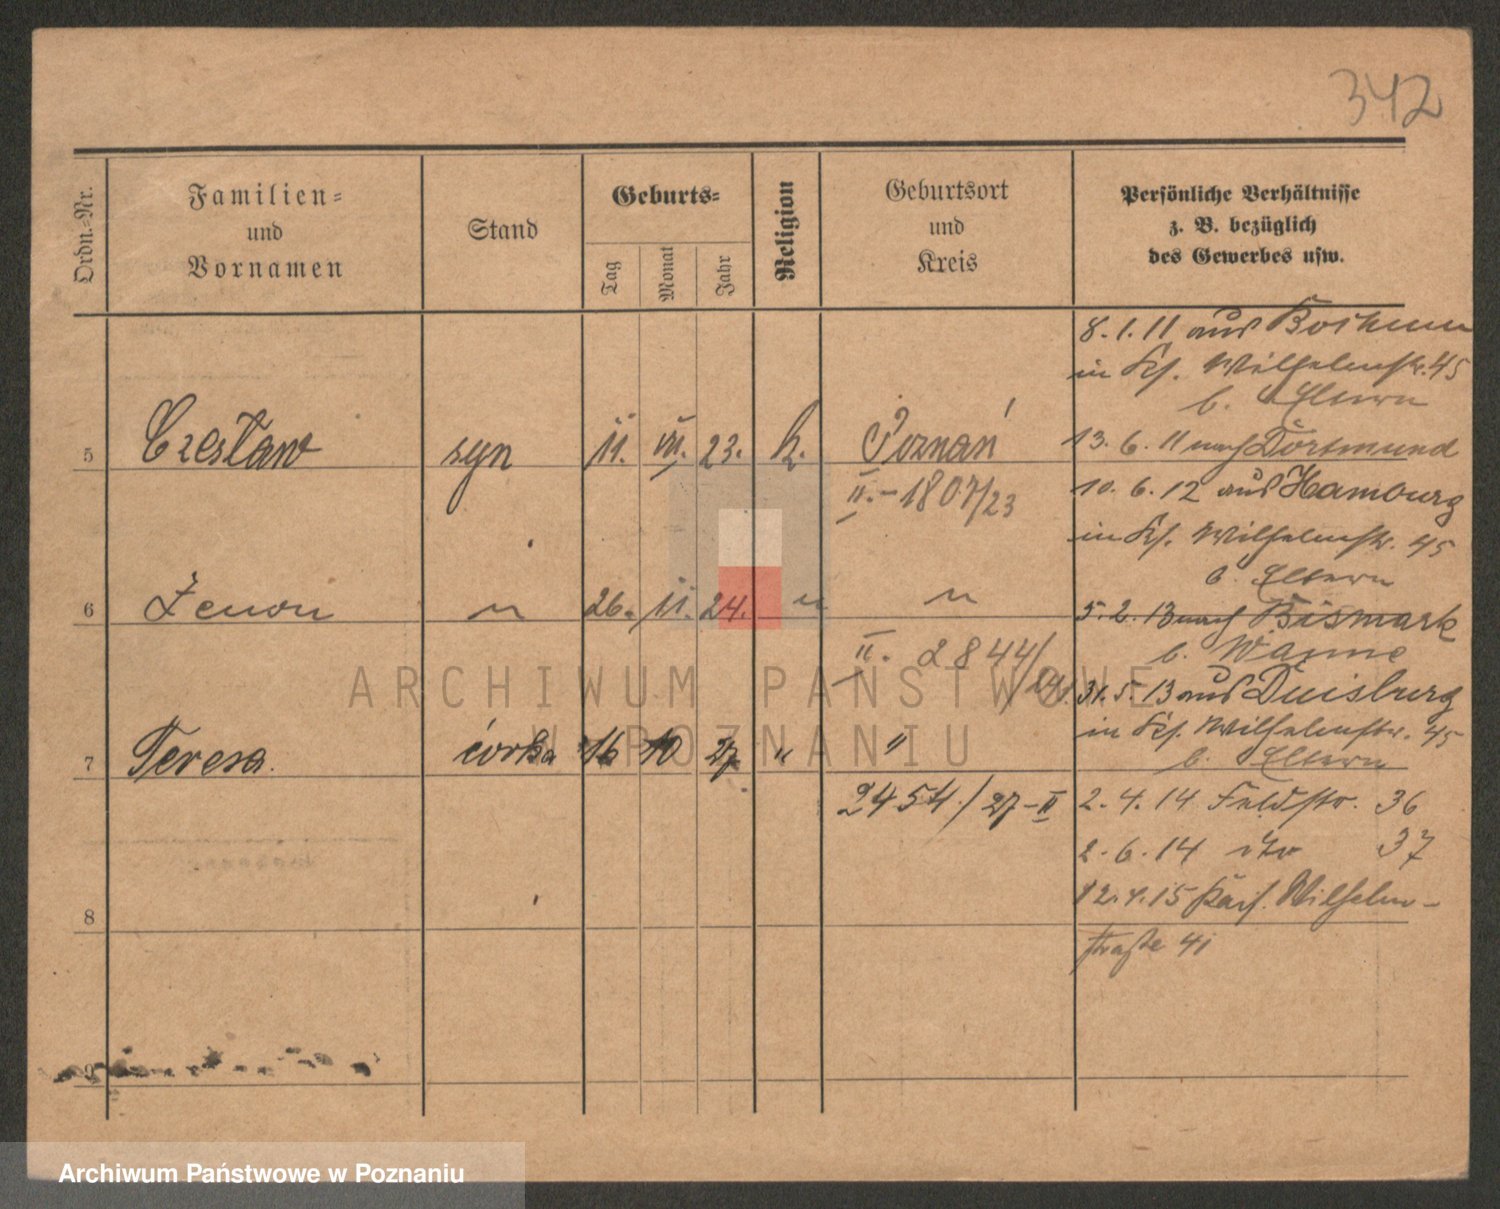 342
Ordn.-Nr.
Familien-
und
Vornamen
Stand
Geburts-
Tag
Monat
Jahr
Religion
Geburtsort
und
Kreis
Persönliche Verhältnisse
z. B. bezüglich
des Gewerbes usw.
8.1.11 aus Bochum
in Kf. Wilhelmstr. 45
b. Eltern
5 Czesław syn 11. VII. 23. k. Poznań
13.6.11 nach Dortmund
II.-1807/23
10.6.12 aus Hamburg
in Kf. Wilhelmstr. 45
b. Eltern
6 Zenon " 26. 11. 24. " "
5.2.13 nach Bismark
b. Wanne
II. 2844/24.
31.5.13 aus Duisburg
in Kf. Wilhelmstr. 45
b. Eltern
7 Teresa. córka 16 10 27 " "
2454/27-II
2.4.14 Feldstr. 36
2.6.14 dto 37
12.4.15 Kais. Wilhelm-
straße 41
8
9
ARCHIWUM PAŃSTWOWE
W POZNANIU
Archiwum Państwowe w Poznaniu